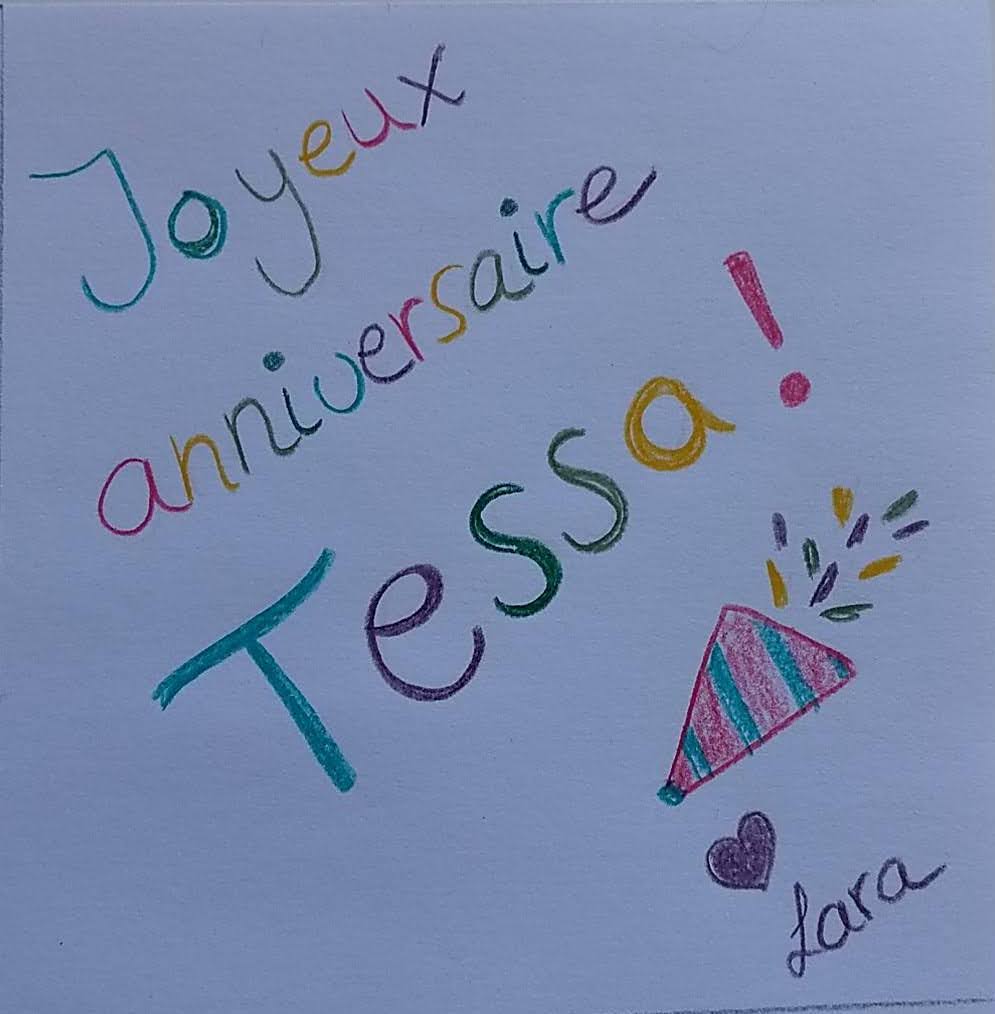 Joyeux
anniversaire
Tessa!
Lara